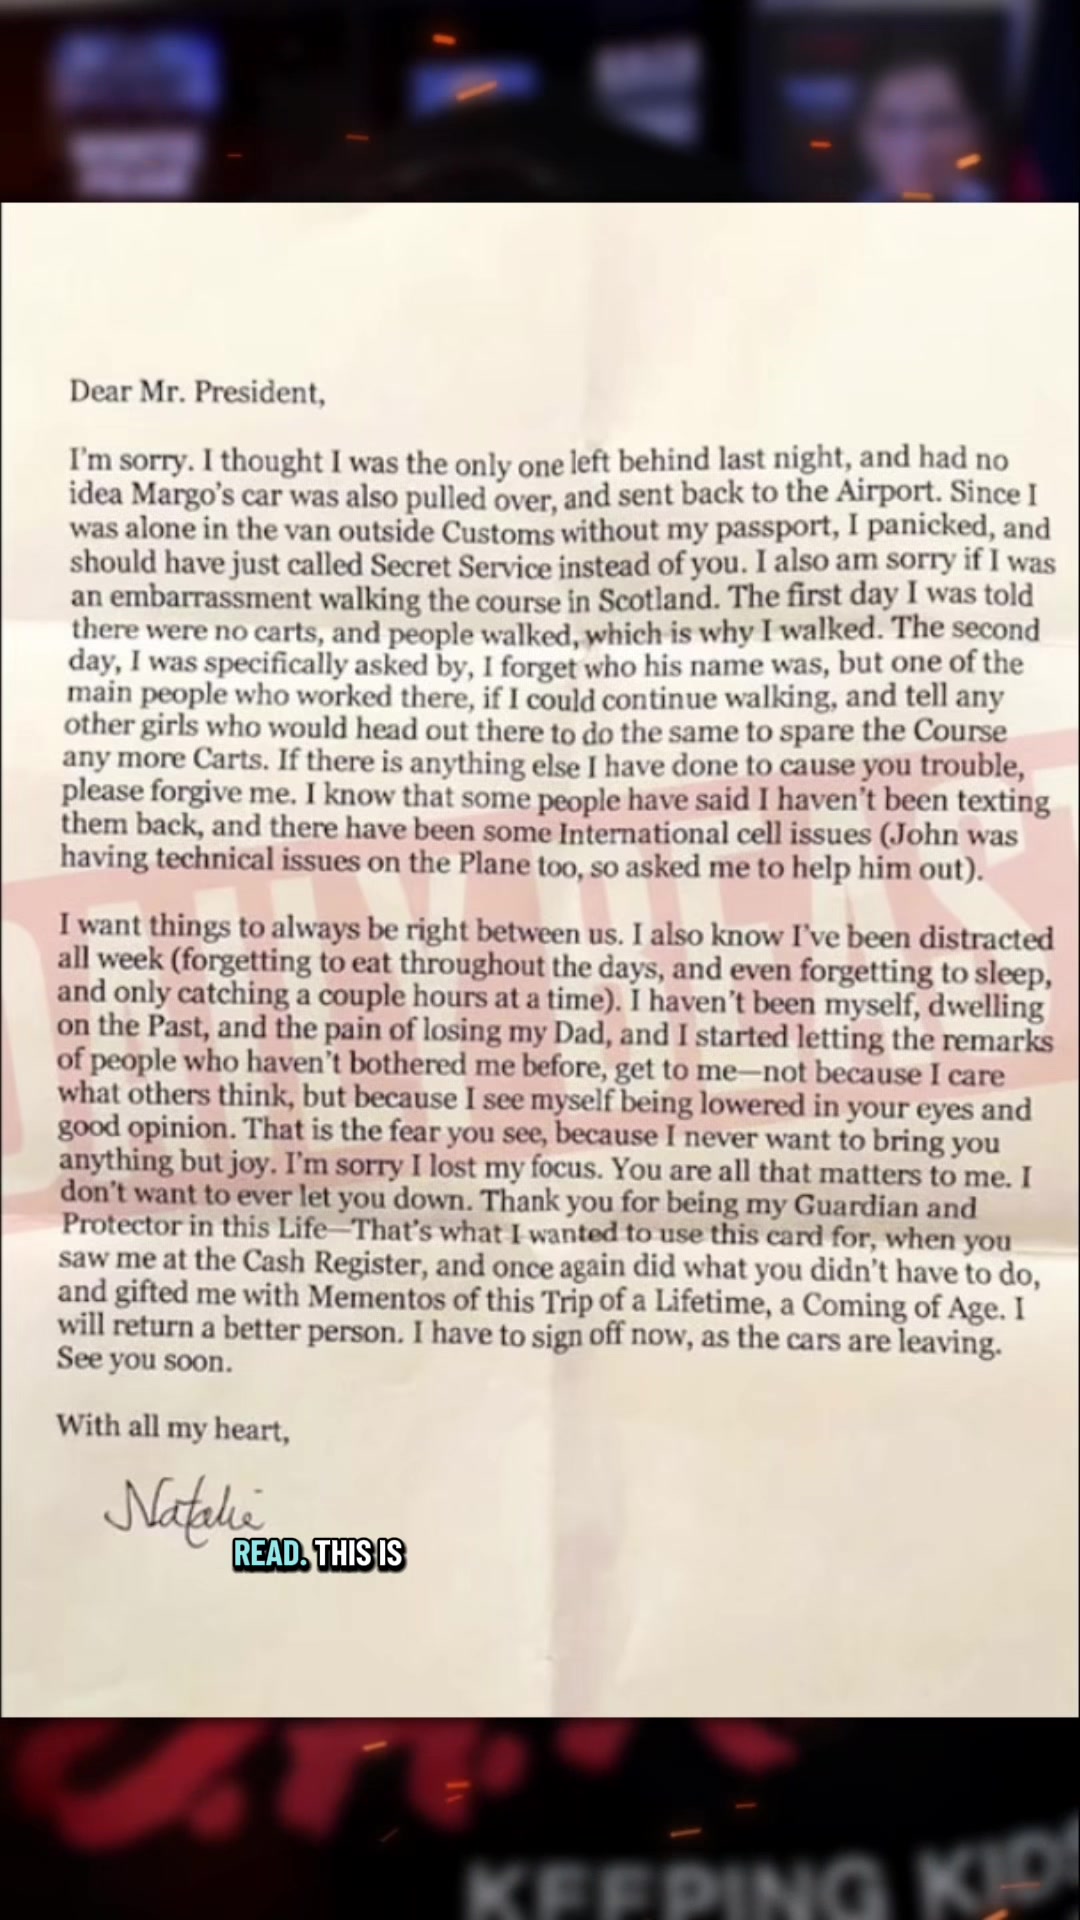 Dear Mr. President,
I'm sorry. I thought I was the only one left behind last night, and had no
idea Margo's car was also pulled over, and sent back to the Airport. Since I
was alone in the van outside Customs without my passport, I panicked, and
should have just called Secret Service instead of you. I also am sorry if I was
an embarrassment walking the course in Scotland. The first day I was told
there were no carts, and people walked, which is why I walked. The second
day, I was specifically asked by, I forget who his name was, but one of the
main people who worked there, if I could continue walking, and tell any
other girls who would head out there to do the same to spare the Course
any more Carts. If there is anything else I have done to cause you trouble,
please forgive me. I know that some people have said I haven't been texting
them back, and there have been some International cell issues (John was
having technical issues on the Plane too, so asked me to help him out).
I want things to always be right between us. I also know I've been distracted
all week (forgetting to eat throughout the days, and even forgetting to sleep,
and only catching a couple hours at a time). I haven't been myself, dwelling
on the Past, and the pain of losing my Dad, and I started letting the remarks
of people who haven't bothered me before, get to me—not because I care
what others think, but because I see myself being lowered in your eyes and
good opinion. That is the fear you see, because I never want to bring you
anything but joy. I'm sorry I lost my focus. You are all that matters to me. I
don't want to ever let you down. Thank you for being my Guardian and
Protector in this Life—That's what I wanted to use this card for, when you
saw me at the Cash Register, and once again did what you didn't have to do,
and gifted me with Mementos of this Trip of a Lifetime, a Coming of Age. I
will return a better person. I have to sign off now, as the cars are leaving.
See you soon.
With all my heart,
Natalie
READ. THIS IS
KEEPING KIDS